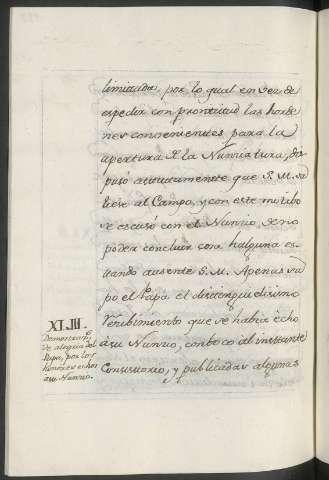 limitada, por lo qual en vez de
expedir con prontitud las horde
nes convenientes para la
apertura de la Nunciatura, dis
puso astutamente que S. M. sa
liese al Campo, y con este motibo
se escusó con el Nuncio, de no
poder concluir cosa halguna es
tando ausente S. M. Apenas su
po el Papa el
recibimiento que se habia echo
á su Nuncio, conboco al instante
Consistorio, y publicadas algunas
XLIII.
Demostracion
de alegria del
Papa, por los
honores echos
a su Nuncio.